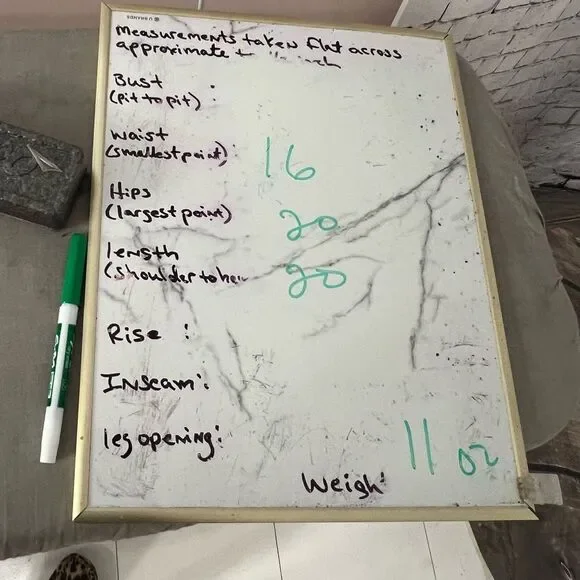 U BRANDS
measurements taken flat across
approximate
Bust :
(pit to pit)
Waist
(smallest point) 16
Hips
(largest point) 20
length
(shoulder to 20
Rise :
Inseam:
leg opening:
11 oz
Weigh
EXPO